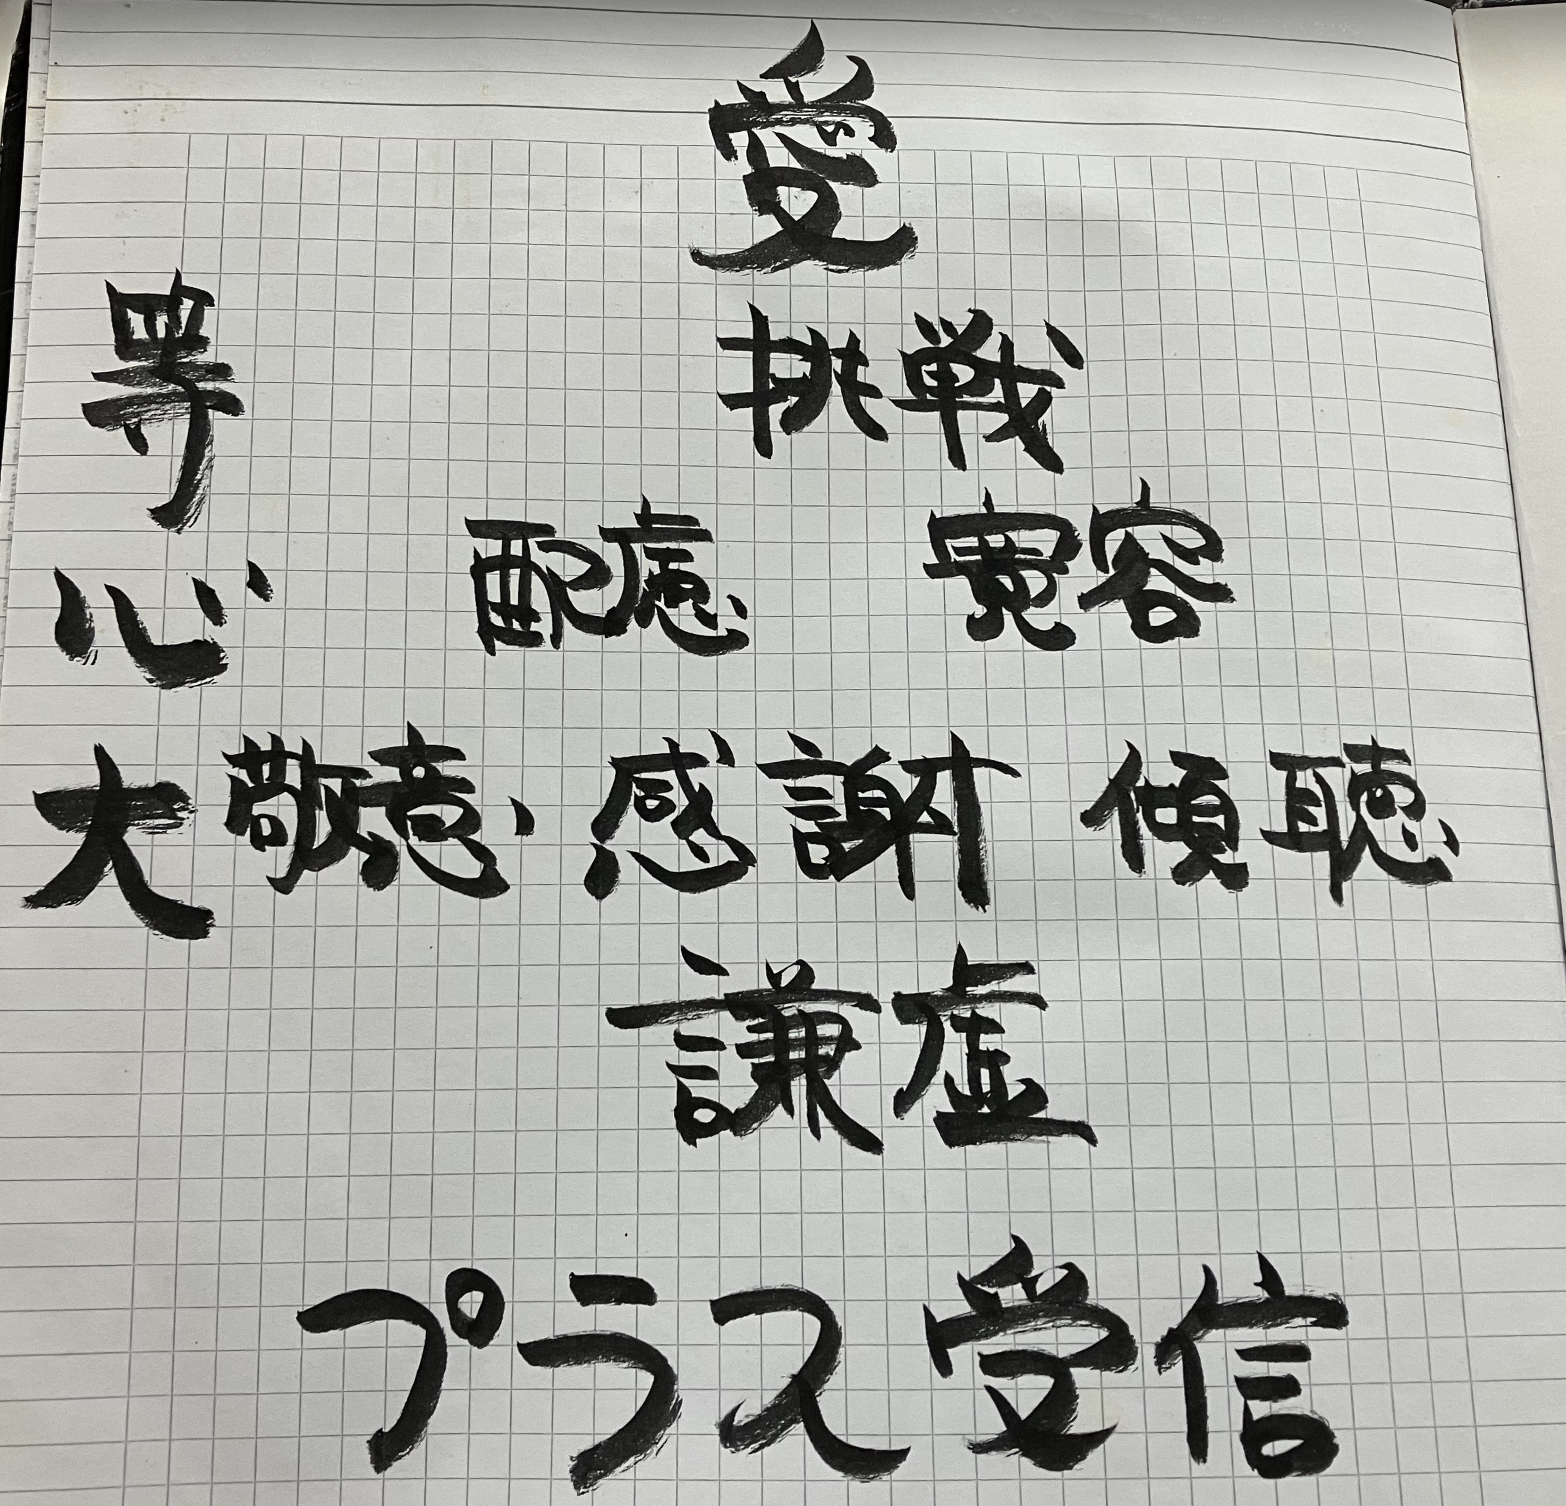 愛
挑戦
配慮 寛容
敬意 感謝 傾聴
謙虚
プラス受信
等心大